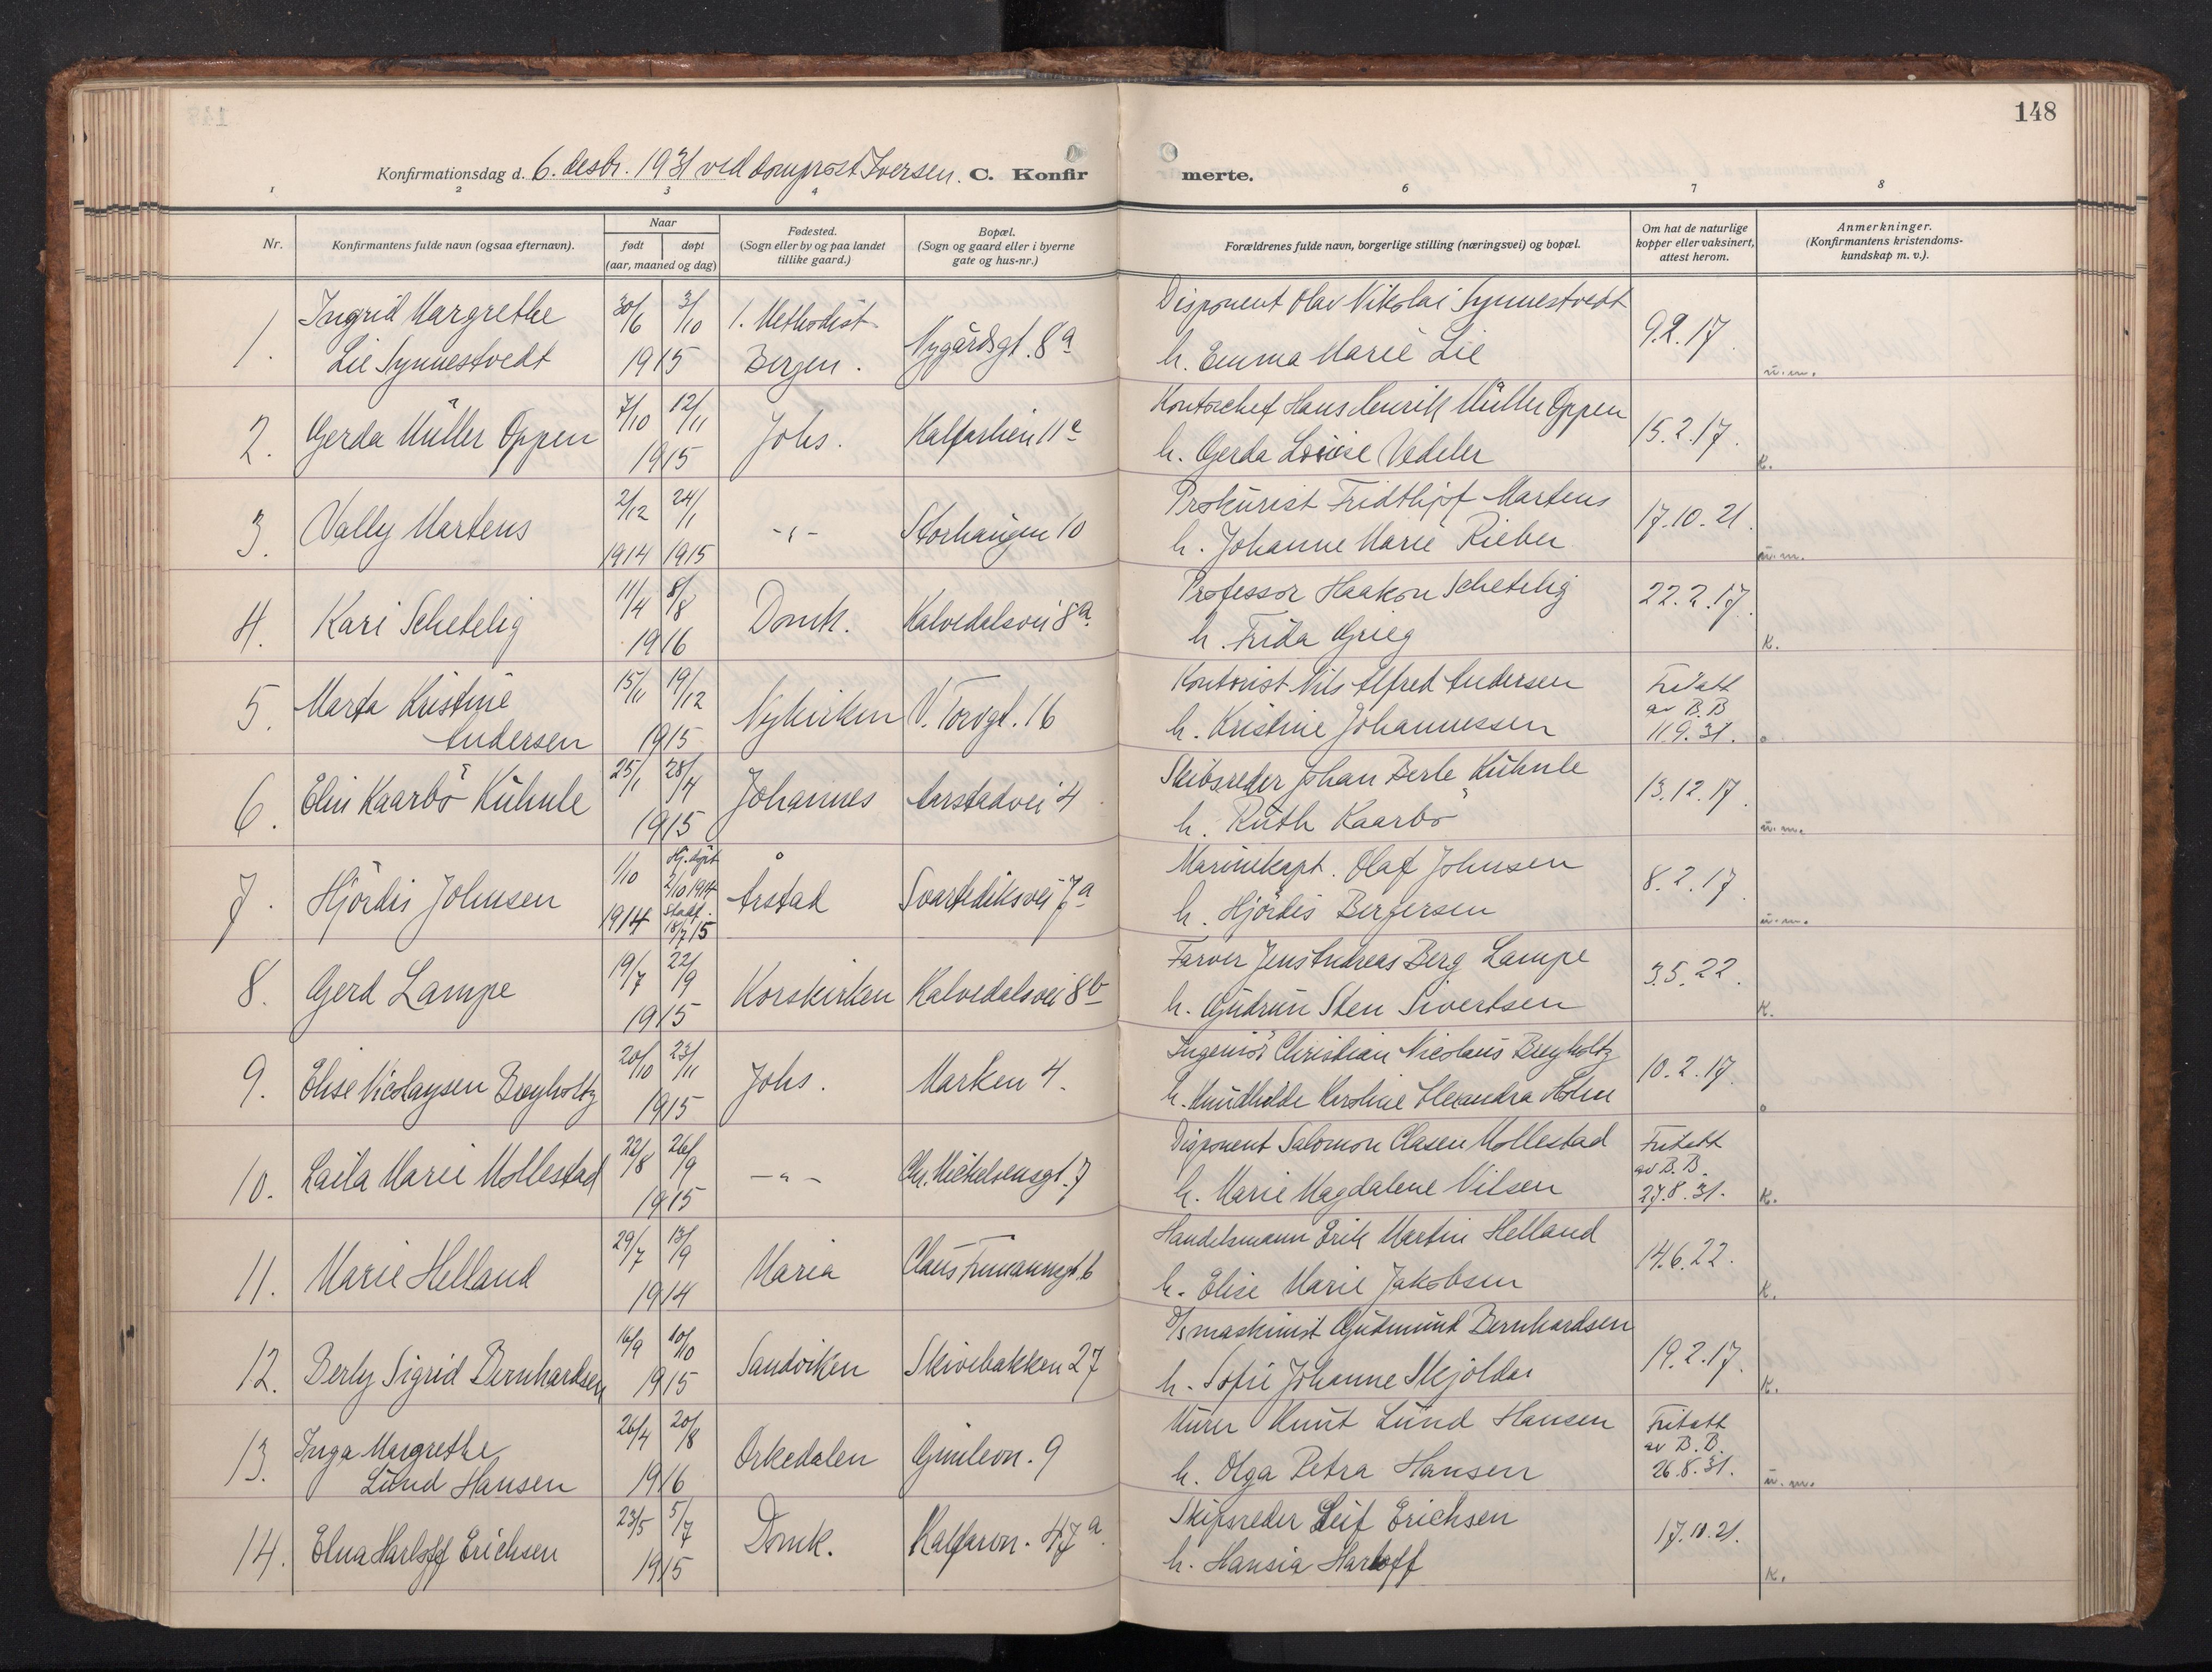 148
Konfirmationsdag d. 6. desbr. 1931 ved domprost Iversen. C. Konfir merte.
1 2 3 4 6 7 8
Nr. Konfirmantens fulde navn (ogsaa efternavn). Naar født døpt (aar, maaned og dag) Fødested. (Sogn eller by og paa landet tillike gaard.) Bopæl. (Sogn og gaard eller i byerne gate og hus-nr.) Forældrenes fulde navn, borgerlige stilling (næringsvei) og bopæl. Om hat de naturlige kopper eller vaksinert, attest herom. Anmerkninger. (Konfirmantens kristendoms-kundskap m. v.).
1. Ingrid Margrethe 30/6 3/10 1. Methodist Nygårdsgt. 8a Disponent Olav Nikolai Synnestvedt 9.2.17.
Lie Synnestvedt 1915 Bergen. h. Emma Marie Lie u.m.
2. Gerda Müller Oppen 7/10 12/11 Johs. Kalfarlien 11e Kontorchef Hans Henrik Müller Oppen 15.2.17.
1915 h. Gerda Lovise Vedeler K.
3. Vally Martens 2/12 24/1 -"- Storhaugen 10 Prokurist Fridthjof Martens 17.10.21.
1914 1915 h. Johanne Marie Rieber u.m.
4. Kari Schetelig 11/4 8/8 Domk. Kalvedalsvei 8a. Professor Haakon Schetelig 22.2.17.
1916 h. Frida Grieg K.
5. Marta Kristine 15/11 19/12 Nykirken V. Torvgt. 16 Kontorist Nils Alfred Andersen Fritatt av B.B
Andersen 1915 h. Kristine Johannessen 11.9.31. o
6. Elin Kaarbö Kühnle 25/1 28/4 Johannes Aarstadvei 4 Skibsreder Johan Berle Kühnle 13.12.17.
1915 h. Ruth Kaarbö u.m.
7. Hjördis Johnsen 1/10 Hj.døpt 2/10 1914 Årstad Svartediksvei 7a Marinekapt. Olaf Johnsen 8.2.17.
1914 Stadf. 18/7 15 h. Hjördis Bergersen u.m.
8. Gerd Lampe 19/7 22/9 Korskirken Kalvedalsvei 8b Farver Jens Andreas Berg Lampe 3.5.22.
1915 h. Gudrun Sten Sivertsen K.
9. Elise Nicolaysen Breyholtz 20/10 23/11 Johs. Marken 4. Ingeniör Christian Nicolaus Breyholtz 10.2.17.
1915 h. Knudhilde Karoline Alexandra Holm o
10. Laila Marie Mollestad 22/8 26/9 -"- Chr. Michelsensgt. 7 Disponent Salomon Clasen Mollestad Fritatt av B.B.
1915 h. Marie Magdalene Nilsen 27.8.31. K.
11. Marie Helland 29/7 13/9 Maria Claus Frimannsgt. 6 Handelsmann Erik Martin Helland 14.6.22.
1914 h. Elise Marie Jakobsen K.
12. Berly Sigrid Bernhardsen 16/9 10/10 Sandviken Skivebakken 27 D/s maskinist Gudmund Bernhardsen 19.2.17.
1915 h. Sofie Johanne Skjoldar K.
13. Inga Margrethe 26/4 20/8 Orkedalen Gimlevn. 9 Murer Knut Lund Hansen Fritatt av B.B.
Lund Hansen 1916 h. Olga Petra Hansen 26.8.31. u.m.
14. Elna Harloff Erichsen 23/5 5/7 Domk. Kalfarvn. 47a. Skipsreder Leif Erichsen 17.10.21.
1915 h. Hansia Harloff K.